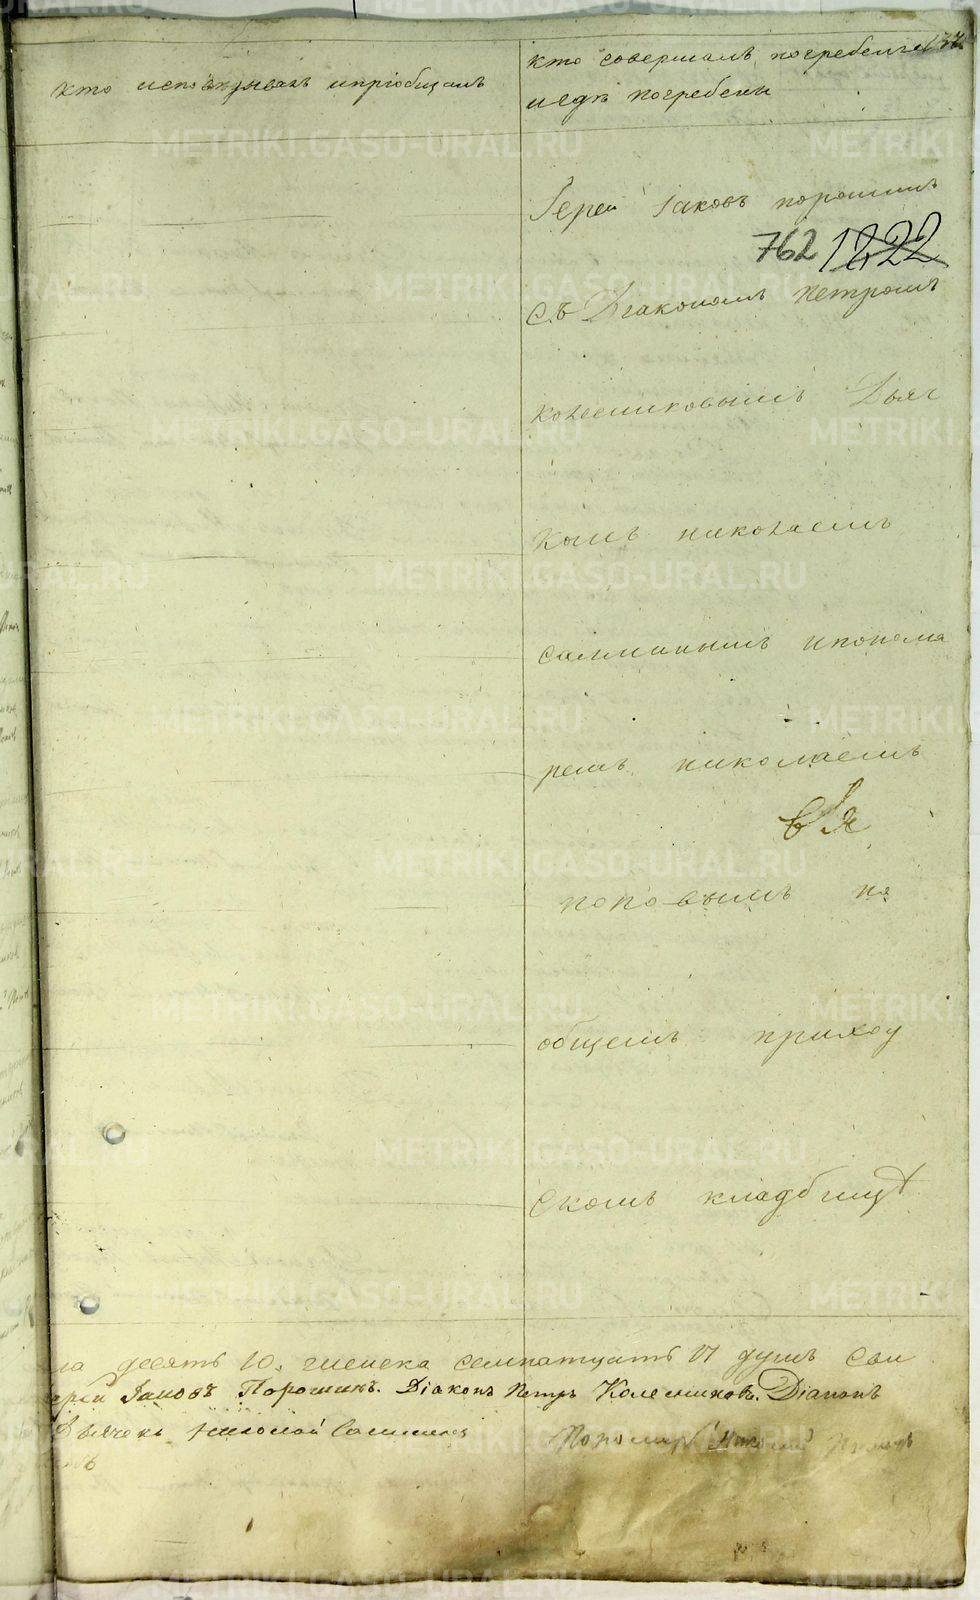 кто исповѣдывалъ и пріобщалъ
кто совершалъ погребеніе
и гдѣ погребены
Іерей Іаковъ порошинъ
762 1222
Съ Діакономъ петромъ
колесниковымъ Дьяч
комъ николаемъ
и понома
ремъ николаемъ
поповымъ на
общемъ приход
скомъ кладбищѣ
десять 10. женска семнатцать 17 душъ
Іаковъ Порошинъ. Діаконъ петръ Колесниковъ. Діаконъ
Дьячекъ николай
Пономарь Николай
METRIKI.GASO-URAL.RU